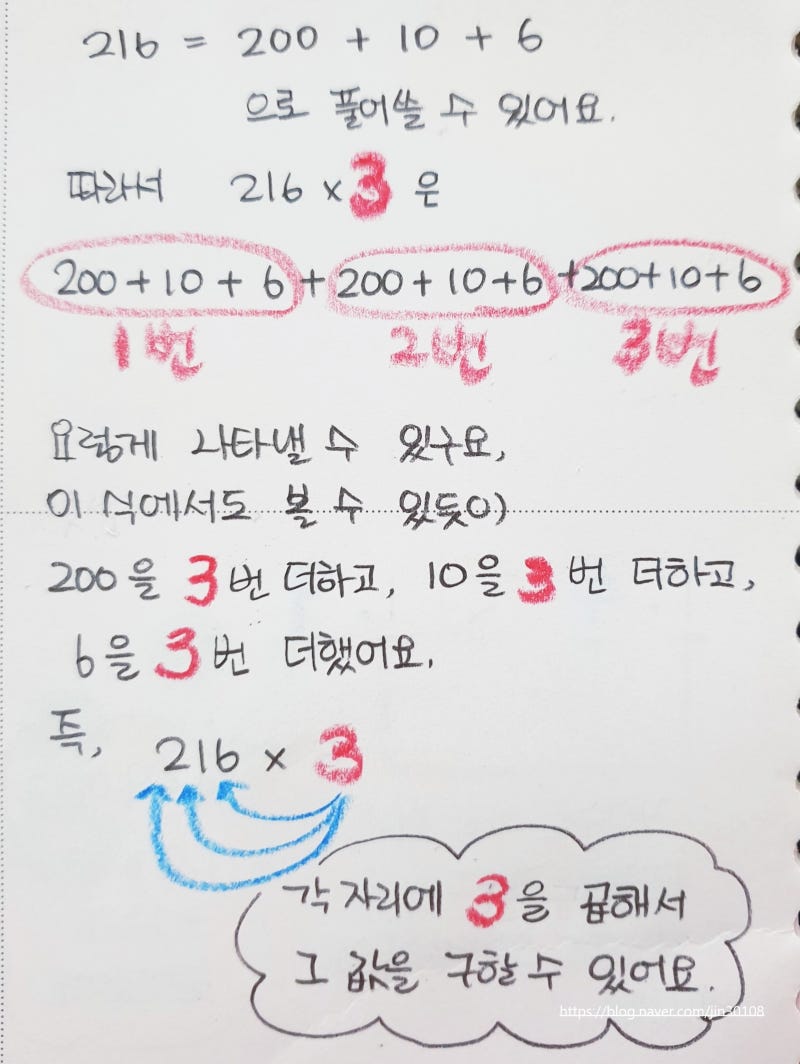 216 = 200 + 10 + 6
으로 풀어쓸 수 있어요.
따라서 216 × 3 은
200 + 10 + 6 + 200 + 10 + 6 + 200 + 10 + 6
1번 2번 3번
요렇게 나타낼 수 있구요,
이 식에서도 볼 수 있듯이)
200을 3번 더하고, 10을 3번 더하고,
6을 3번 더했어요.
즉, 216 × 3
각 자리에 3을 곱해서
그 값을 구할 수 있어요.
https://blog.naver.com/jin30108